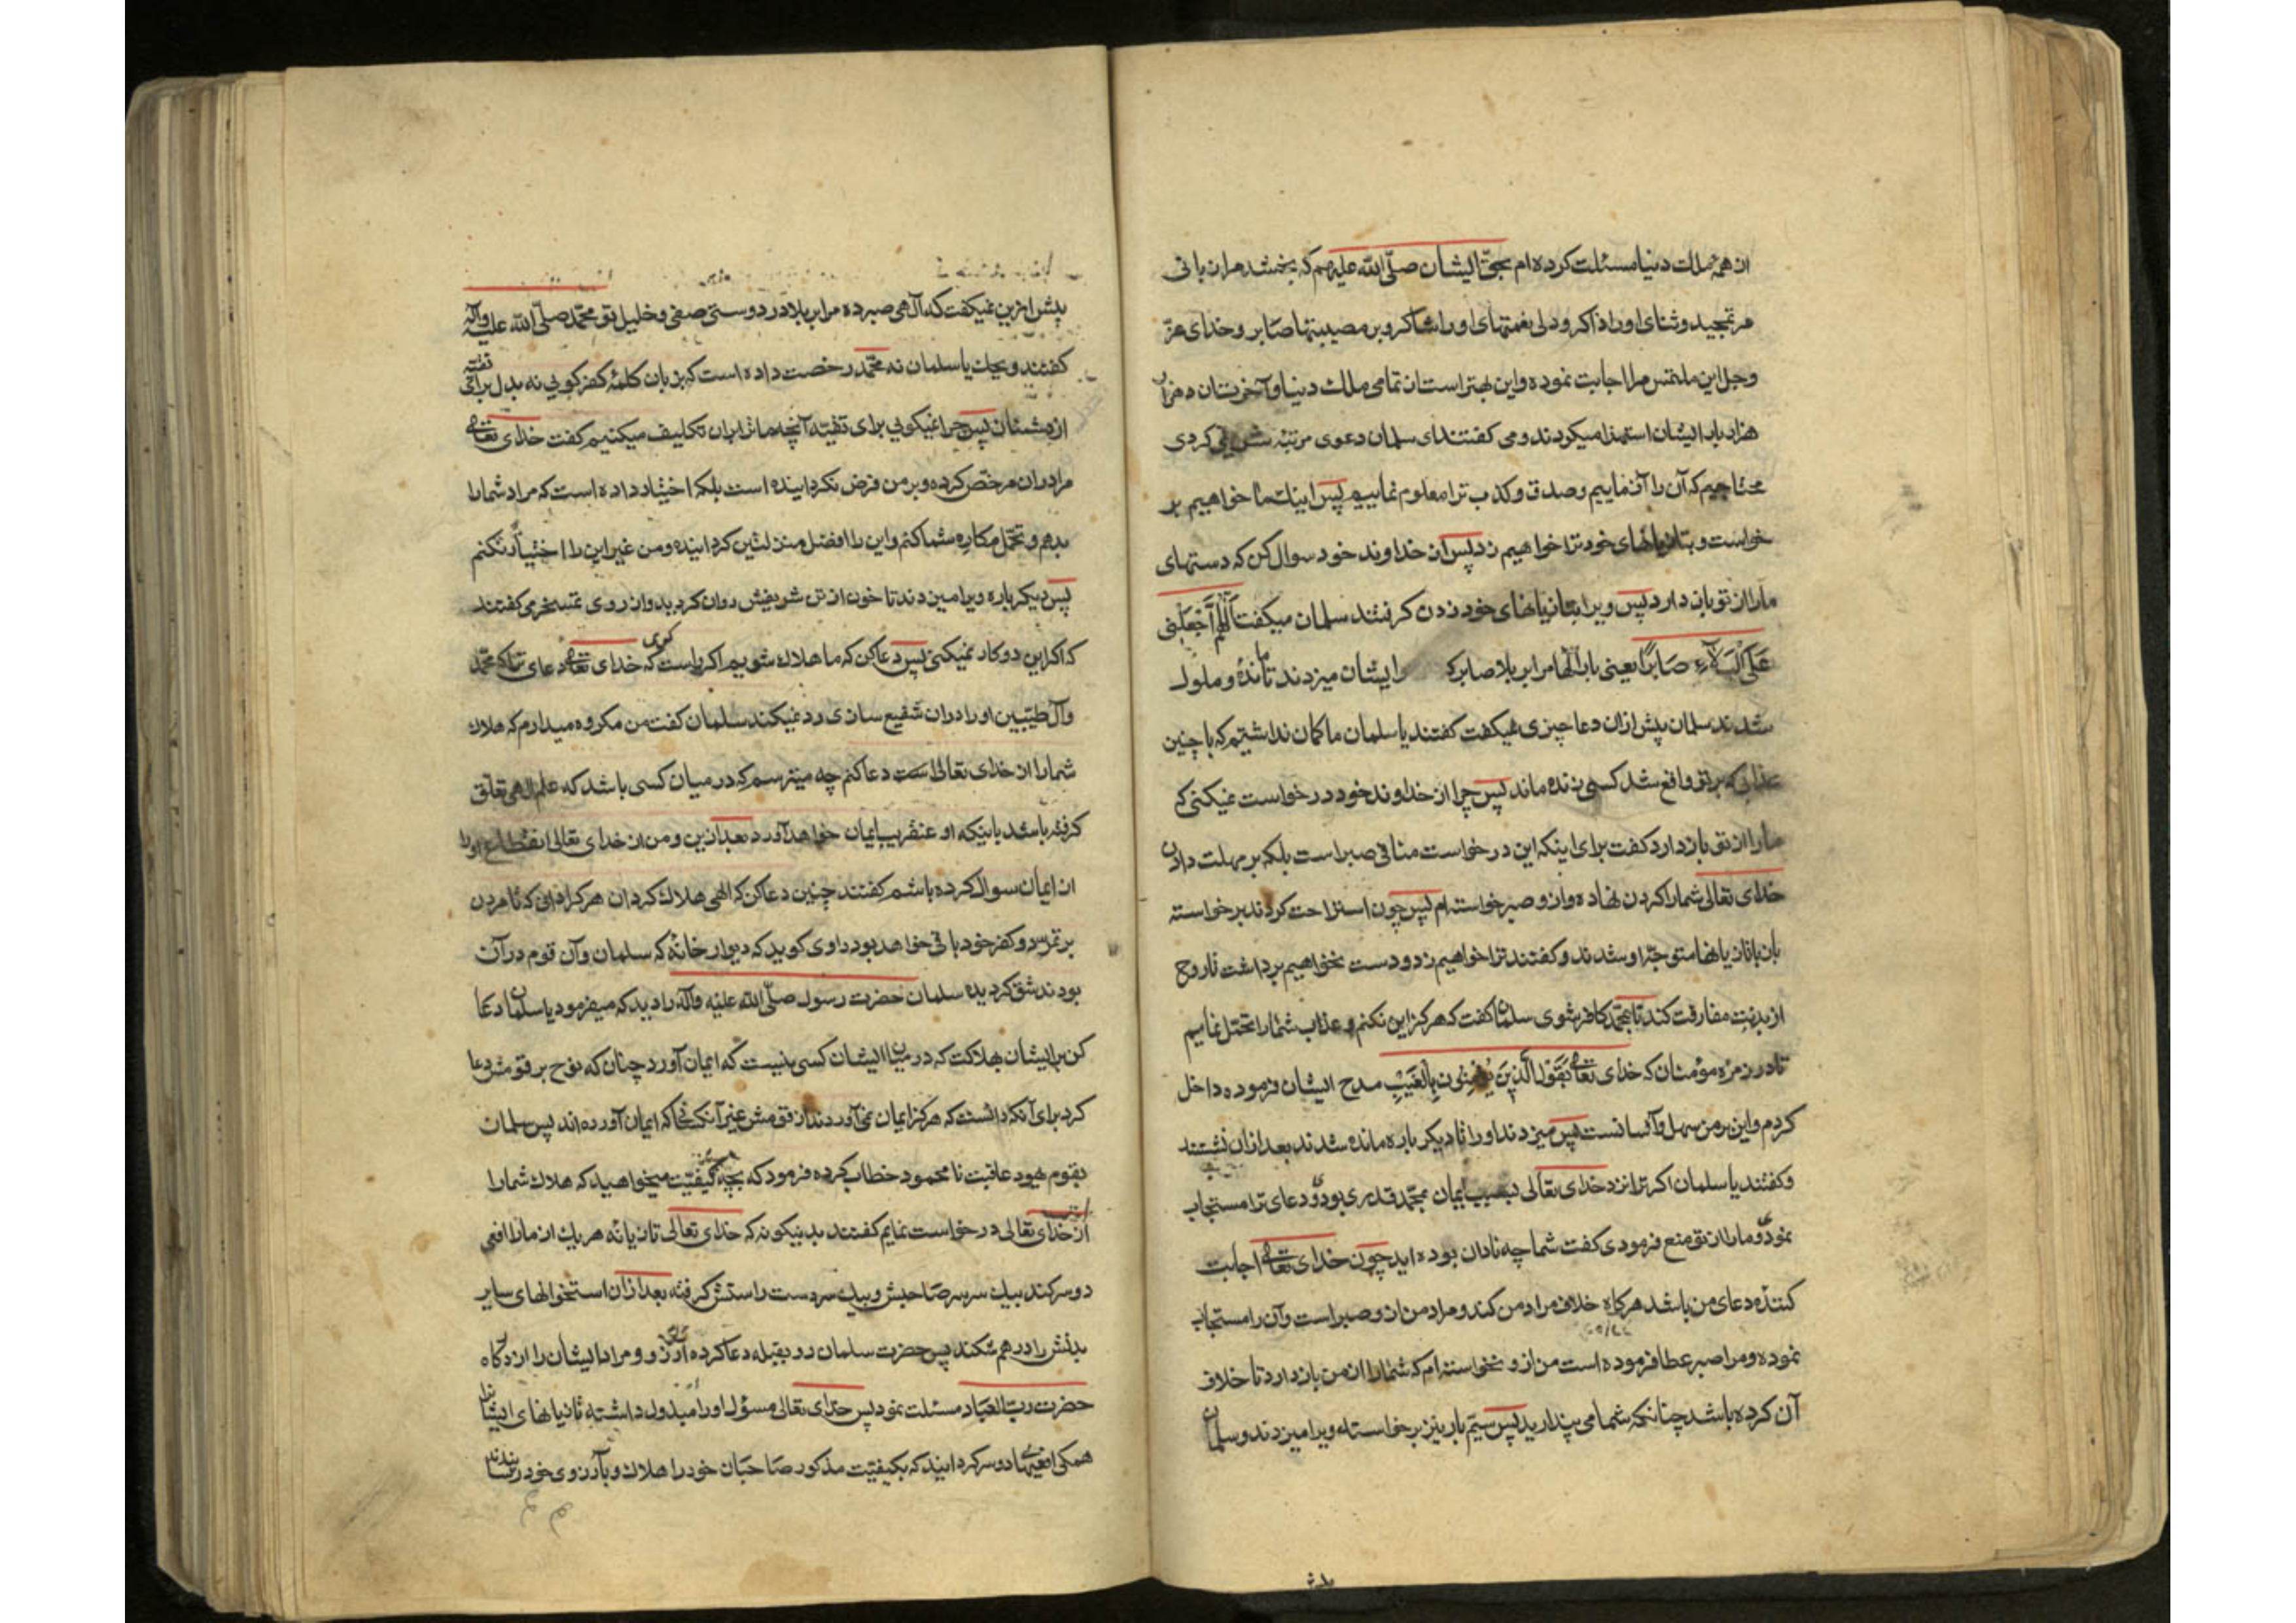 از همه ملک دنیا مسئلت کرده ام بحق ایشان صلی الله علیهم که بخشد مرا زبانی
مر تمجید و ثنای او را ذاکر و دلی نعمتهای او را شاکر و بر مصیبتها صابر و خدای عز
و جل این ملتمس مرا اجابت نموده و این بهتر است از تمامی ملک دنیا و آخرتتان
هزار بار ایشان استهزا میکردند و می گفتند ای سلمان دعوی مرتبه کردی
محتاجیم که آن را آزماییم و صدق و کذب ترا معلوم نماییم پس اینک ما خواهیم بر
خواست و بتازیانهای خود ترا خواهیم زد پس از خداوند خود سوال کن که دستهای
ما را از تو باز دارد پس ویرا بتازیانهای خود زدن گرفتند سلمان میگفت اللهم اجعلنی
علی البلاء صابرا یعنی بار الها مرا بر بلا صابر و ایشان میزدند تا مانده و ملول
شدند سلمان پیش ازان دعا چیزی نمیگفت گفتند یا سلمان ما گمان نداشتیم که با چنین
عذابی که بر تو واقع شد کسی زنده ماند پس چرا از خداوند خود درخواست نمیکنی که
ما را از تو باز دارد گفت برای اینکه این درخواست منافی صبر است بلکه بر مهلت دادن
خدای تعالی شما را گردن نهاده و ازو صبر خواسته ام پس چون استراحت کردند برخواسته
بان تازیانها متوجه او شدند و گفتند ترا خواهیم زد و دست نخواهیم برداشت تا روح
از بدنت مفارقت کند تا بمحمد کافر شوی سلمان گفت که هرگز این نکنم و عذاب شما را تحمل نمایم
تا در زمره مؤمنان که خدای تعالی بقول الذین یؤمنون بالغیب مدح ایشان فرموده داخل
کردم و این بر من سهل و آسانست پس میزدند او را تا دیگر باره مانده شدند بعد ازان نشستند
و گفتند یا سلمان اگر ترا نزد خدای تعالی بسبب ایمان بمحمد قدری بودی دعای ترا مستجاب
نمودی و ما را از تو منع فرمودی گفت شما چه نادان بوده اید چون خدای تعالی اجابت
کننده دعای من باشد هرگاه خلاف مراد من کند و مراد من ازو صبر است و آن را مستجاب
نموده و مرا صبر عطا فرموده است من ازو نخواسته ام که شما را از من باز دارد تا خلاف
آن کرده باشد چنانکه شما می پندارید پس سیم بار نیز برخواسته ویرا میزدند و سلمان
پیش ازین نمیگفت که الهی صبر ده مرا بر بلا در دوستی صفی و خلیل تو محمد صلی الله علیه وآله
گفتند ویحک یا سلمان نه محمد رخصت داده است که بزبان کلمه کفر گویی نه بدل برای تقیه
از دشمنان پس چرا نمیگویی برای تقیه آنچه ما ترا بران تکلیف میکنیم گفت خدای تعالی
مرا دران مرخص کرده و بر من فرض نگردانیده است بلکه اختیار داده است که مراد شما را
ندهم و تحمل مکاره شما کنم و این را افضل منزلتین گردانیده و من غیر این را اختیار نکنم
پس دیگر باره ویرا میزدند تا خون از تن شریفش روان گردید و از روی تمسخر می گفتند
که اگر این دو کار نمیکنی پس دعا کن که ما هلاک شویم اگر راست گوی که خدای تعالی دعای ترا که محمد
و آل طیبین او را دران شفیع سازی رد نمیکند سلمان گفت من مکروه میدارم که هلاک
شما را از خدای تعالی دعا کنم چه میترسم که در میان کسی باشد که علم الهی تعلق
گرفته باشد باینکه او عنقریب ایمان خواهد آورد بعد ازین و من از خدای تعالی انقطاع او را
از ایمان سوال کرده باشم گفتند چنین دعا کن که الهی هلاک گردان هر کرا دانی که تا مردن
بر تمرد و کفر خود باقی خواهد بود راوی گوید که دیوار خانه که سلمان و آن قوم در آن
بودند شق گردیده سلمان حضرت رسول صلی الله علیه وآله را دید که میفرمود یا سلمان دعا
کن بر ایشان بهلاکت که در میان ایشان کسی نیست که ایمان آورد چنان که نوح بر قومش دعا
کرد برای آنکه دانست که هرگز ایمان نمی آوردند از قومش غیر آنکسانی که ایمان آورده اند پس سلمان
بقوم یهود عاقبت نامحمود خطاب کرده فرمود که بچه کیفیت میخواهید که هلاک شما را
از خدای تعالی درخواست نمایم گفتند بدینگونه که خدای تعالی تازیانه هر یک از ما را افعی
دو سر کند بیک سر سر صاحبش و بیک سر دست راستش گرفته بعد ازان استخوانهای سایر
بدنش را درهم شکند پس حضرت سلمان رو بقبله دعا کرده آرزو و مراد ایشان را از درگاه
حضرت رب العباد مسئلت نمود پس خدای تعالی مسؤل او را مبذول داشته تازیانهای ایشان را
همگی افعیهای دو سر گردانید که بکیفیت مذکور صاحبان خود را هلاک و بآرزوی خود رسانیدند